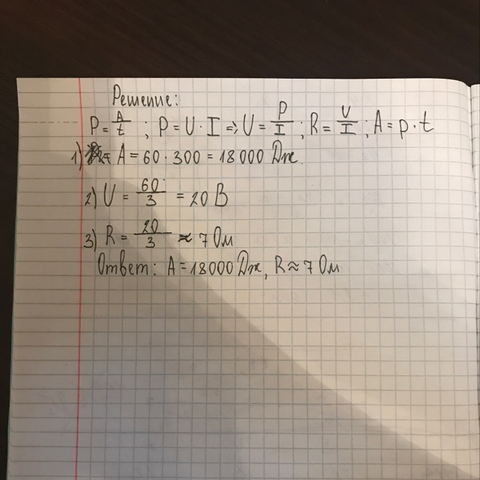 Решение:
P = A/t ; P = U · I ⇒ U = P/I ; R = U/I ; A = p · t
1) A = 60 · 300 = 18 000 Дж.
2) U = 60/3 = 20 В
3) R = 20/3 ≈ 7 Ом
Ответ: A = 18000 Дж, R ≈ 7 Ом